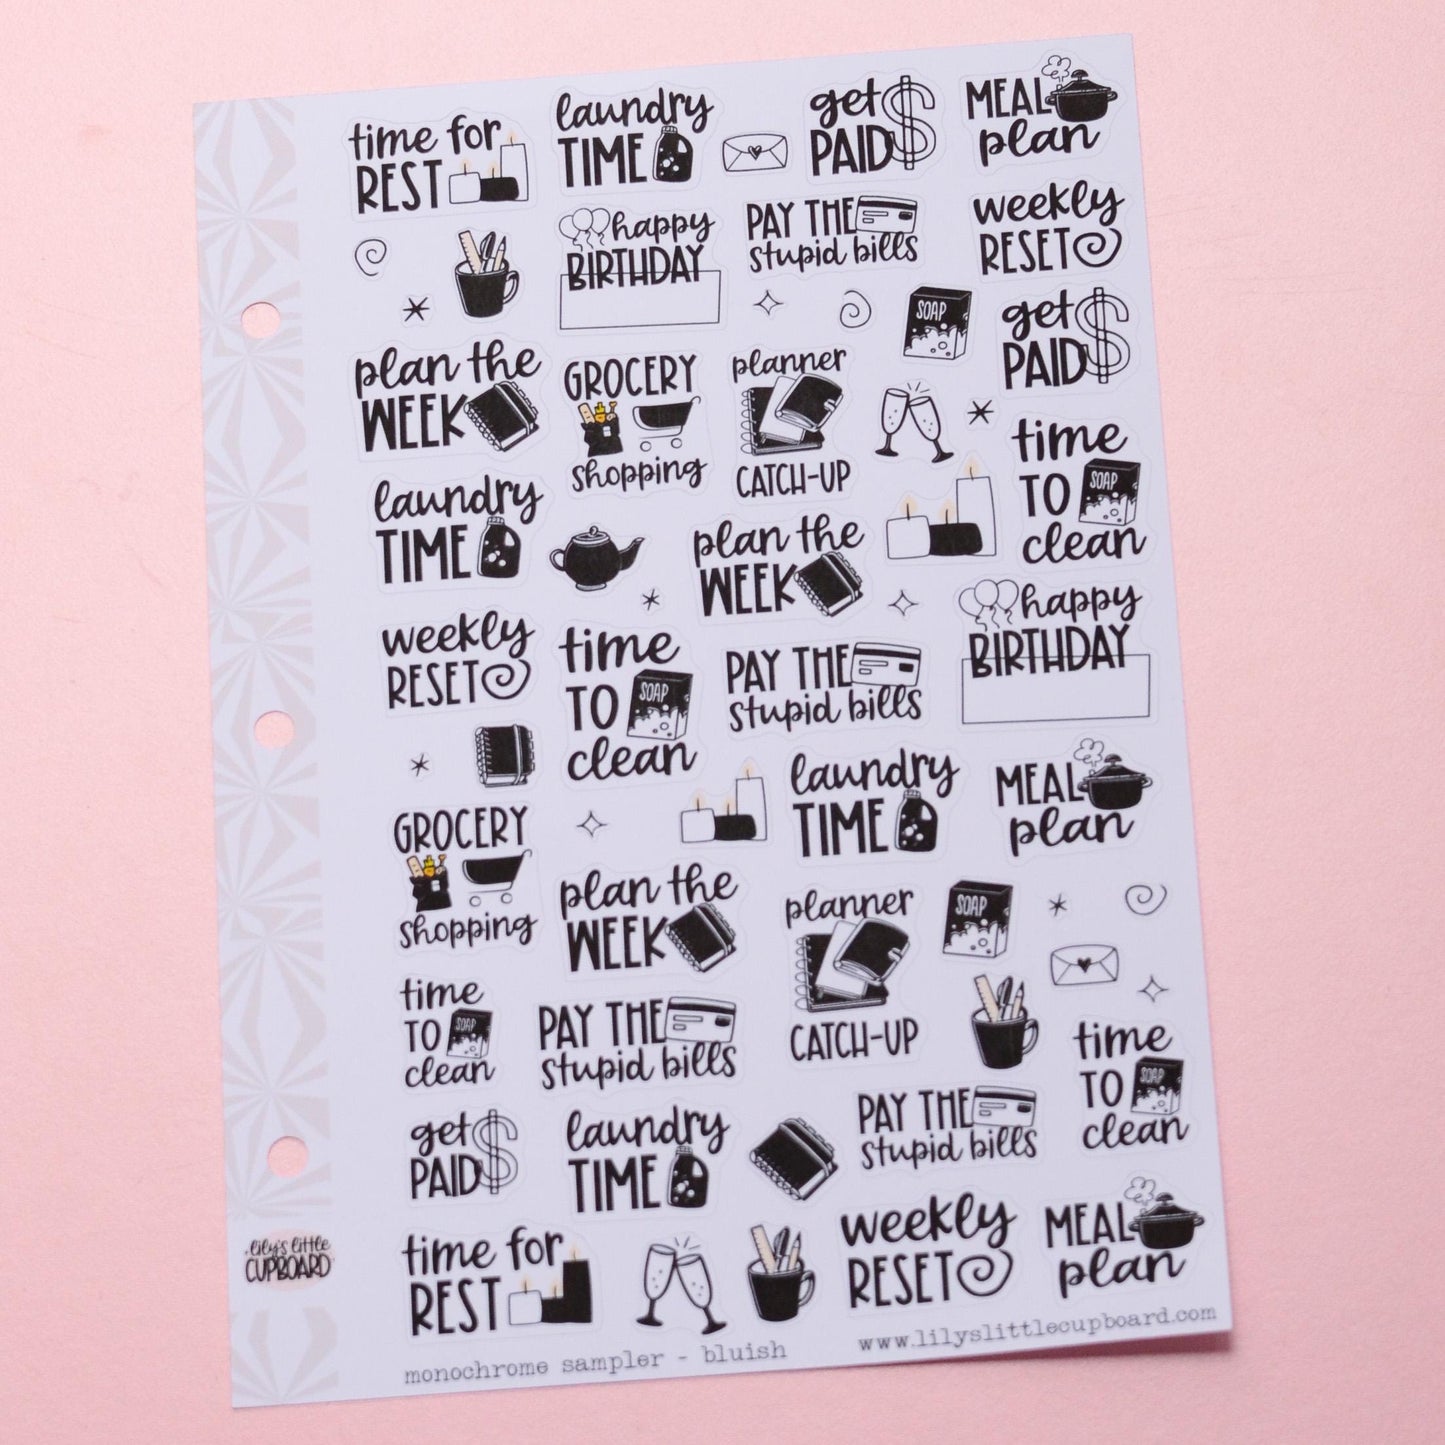 time for
REST
laundry
TIME
get
PAID
MEAL
plan
happy
BIRTHDAY
PAY THE
stupid bills
weekly
RESET
SOAP
get
PAID
plan the
WEEK
GROCERY
shopping
planner
CATCH-UP
time
TO
SOAP
clean
laundry
TIME
plan the
WEEK
happy
BIRTHDAY
weekly
RESET
time
TO
SOAP
clean
PAY THE
stupid bills
laundry
TIME
MEAL
plan
GROCERY
shopping
plan the
WEEK
planner
CATCH-UP
SOAP
time
TO
SOAP
clean
PAY THE
stupid bills
time
TO
SOAP
clean
get
PAID
laundry
TIME
PAY THE
stupid bills
time for
REST
weekly
RESET
MEAL
plan
lily's little
CUPBOARD
monochrome sampler - bluish
www.lilyslittlecupboard.com